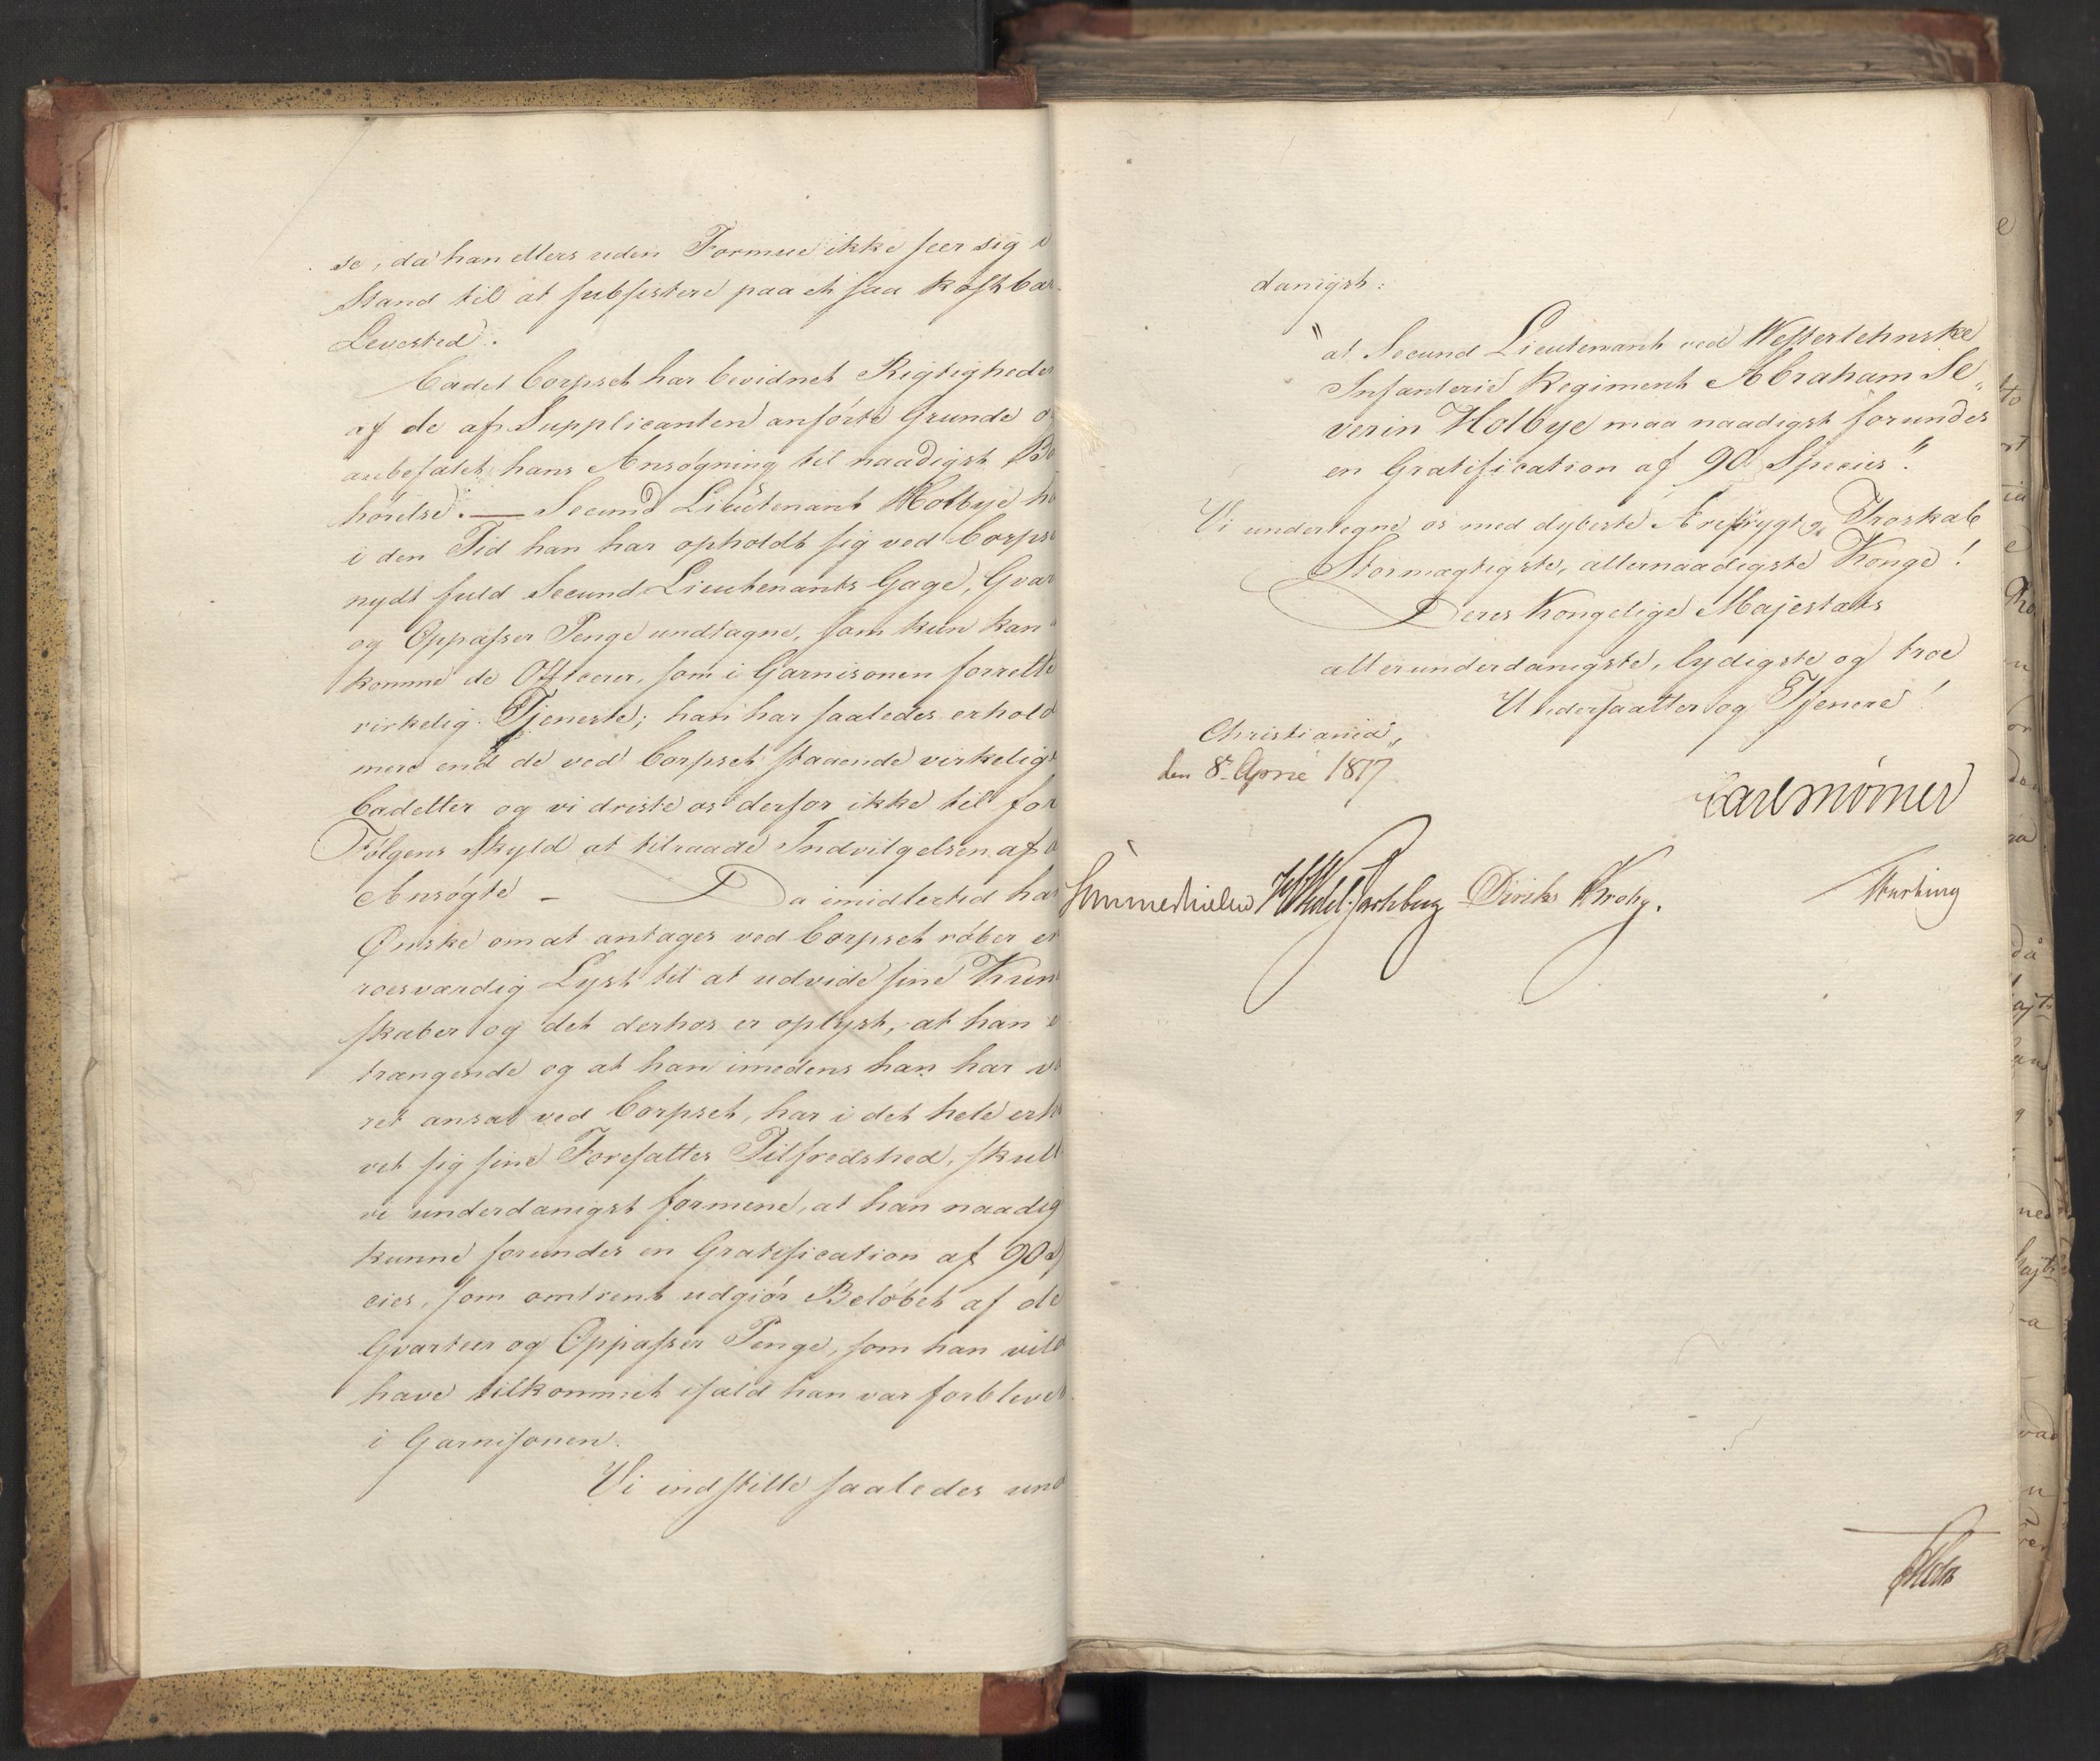 se, da han ellers uden Formue ikke seer sig i
Stand til at subsistere paa et saa kostbar
Levested.
Cadet Corpset har bevidnet Rigtigheden
af de af Supplicanten anförte Grunde o
anbefalet hans Ansögning til naadigst Bö
hörelse. — Secund Lieutenant Holbye ha
i den Tid han har opholdt sig ved Corpse
nydt fuld Secund Lieutenants Gage, Qvar
og Oppasser Penge undtagne, som kun kan
komme de Officerer, som i Garnisonen forrette
virkelig Tjeneste; han har saaledes erhold
mere end de ved Corpset staaende virkelige
Cadetter og vi driste os derfor ikke til for
Fölgens Skyld at tilraade Indvilgelsen af d
Ansögte – Da imidlertid hans
Ønske om at antages ved Corpset röber en
roesværdig Lyst til at udvide sine Kun
skaber og det derhos er oplyst, at han e
trængende og at han imedens han har væ
ret ansat ved Corpset, har i det hele erhv
vet sig sine Foresattes Tilfredshed, skull
vi underdanigst formene, at han naadig
kunne forundes en Gratification af 90 Sp
cies, som omtrent udgiör Belöbet af de
Qvarteer og Oppasser Penge, som han vild
have tilkommet ifald han var forblevet
i Garnisonen.
Vi indstille saaledes und
danigst:
"at Secund Lieutenant ved Westerlehnske
Infanterie Regiment Abraham Se„
verin Holbye maa naadigst forundes
en Gratification af 90 Species".
Vi undertegne os med dybeste Ærefrygt og Troskab
Stormægtigste, allernaadigste Konge!
Deres Kongelige Majestæts
allerunderdanigste, lydigste og troe
Undersaatter og Tjenere!
Christiania,
den 8de April 1817.
Carl Mörner
Sommerhielm HWedel-Jarlsberg Diriks Krohg.